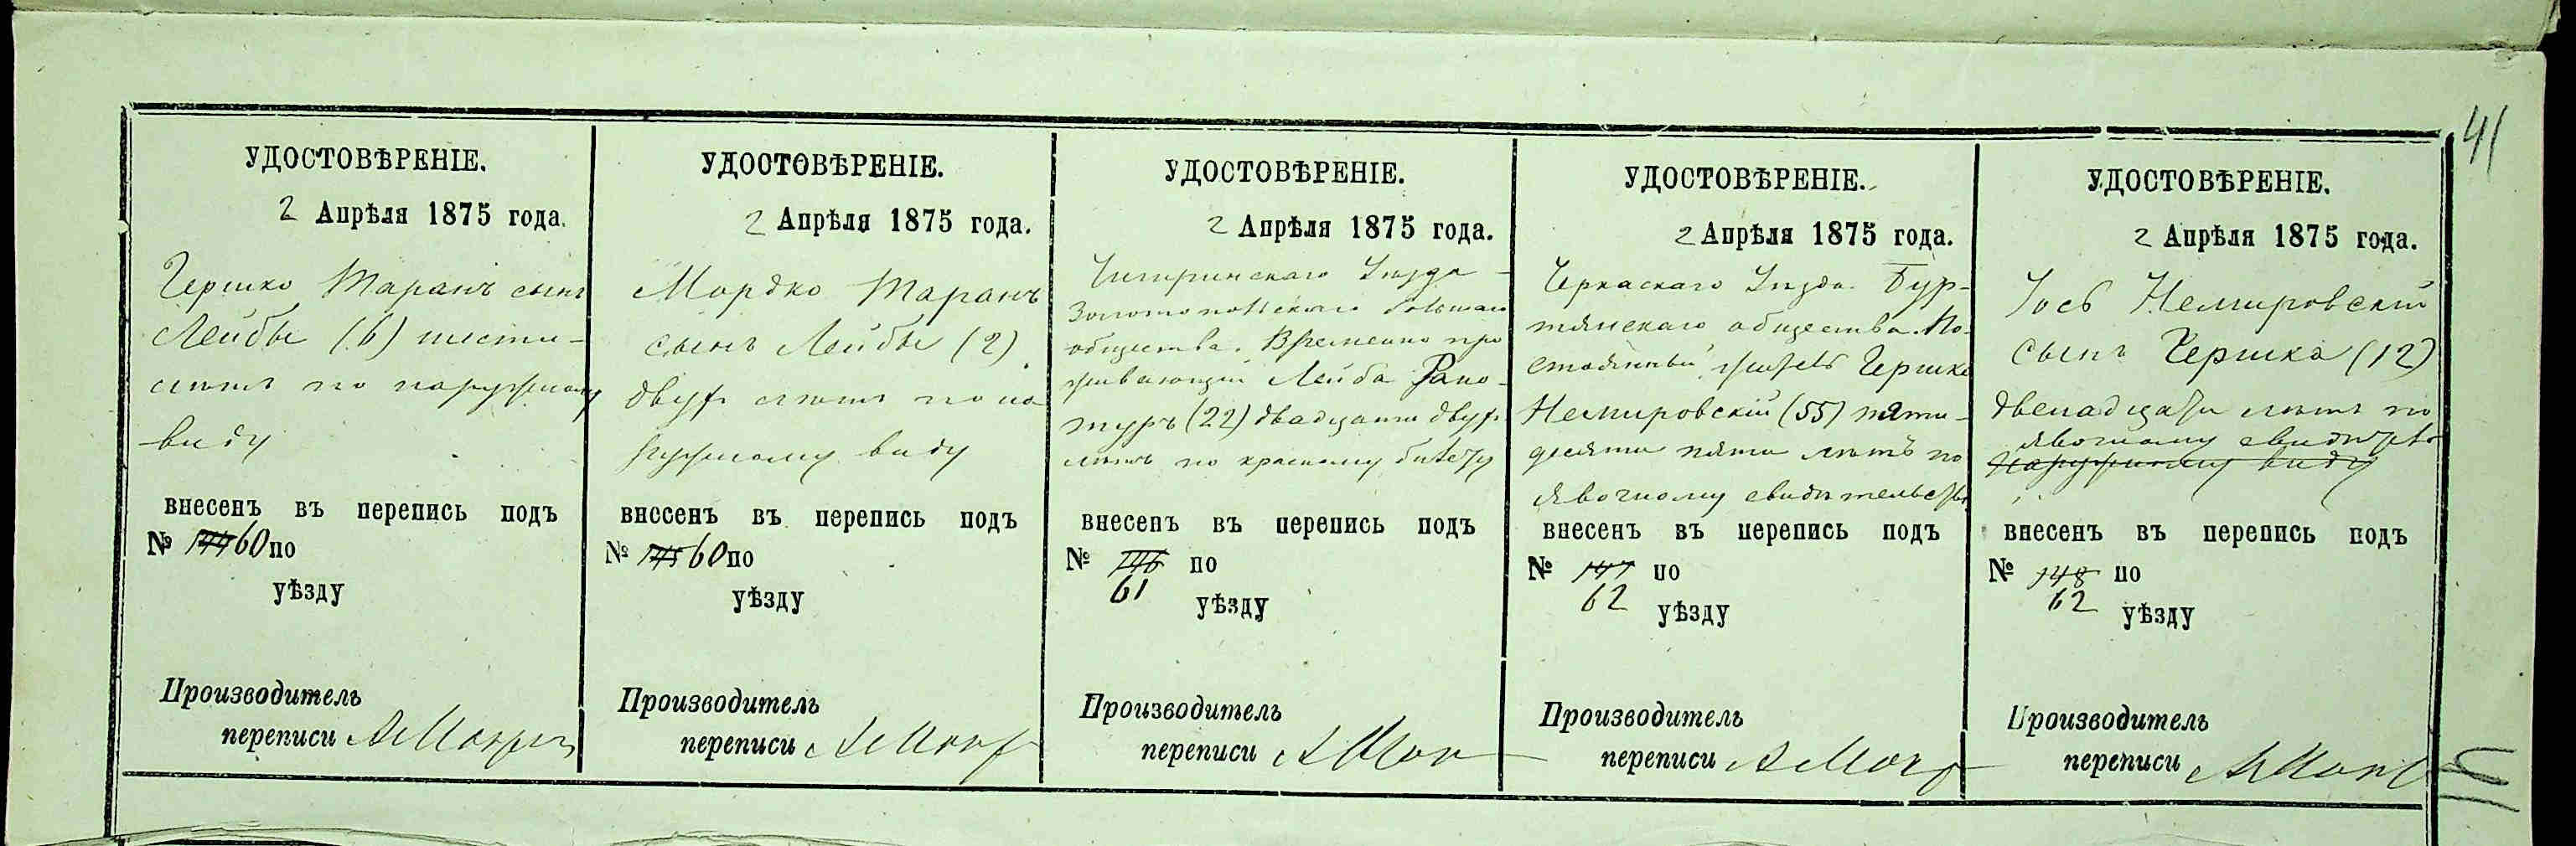 41
УДОСТОВѢРЕНІЕ.
2 Апрѣля 1875 года.
Гершко Таранъ сынъ
Лейбы (6) шести-
лѣтъ по наружному
виду
внесенъ въ перепись подъ
№ 144 60 по
уѣзду
Производитель
переписи
УДОСТОВѢРЕНІЕ.
2 Апрѣля 1875 года.
Мордко Таранъ
сынъ Лейбы (2)
двухъ лѣтъ по на
ружному виду
внесенъ въ перепись подъ
№ 145 60 по
уѣзду
Производитель
переписи
УДОСТОВѢРЕНІЕ.
2 Апрѣля 1875 года.
Чигиринскаго Уѣзда
общества. Временно про
живающій Лейба Рапо-
туръ (22) двадцати двухъ
лѣтъ по красному билету
внесенъ въ перепись подъ
№ 146 по
61 уѣзду
Производитель
переписи
УДОСТОВѢРЕНІЕ.
2 Апрѣля 1875 года.
Черкаскаго Уѣзда Бур-
тянскаго общества. По-
стоянный житель Гершко
Немировскій (55) пяти-
десяти пяти лѣтъ по
явочному свидѣтельству
внесенъ въ перепись подъ
№ 147 по
62 уѣзду
Производитель
переписи
УДОСТОВѢРЕНІЕ.
2 Апрѣля 1875 года.
Іось Немировскій
сынъ Гершка (12)
двенадцати лѣтъ по
явочному
наружному виду
внесенъ въ перепись подъ
№ 148 по
62 уѣзду
Производитель
переписи